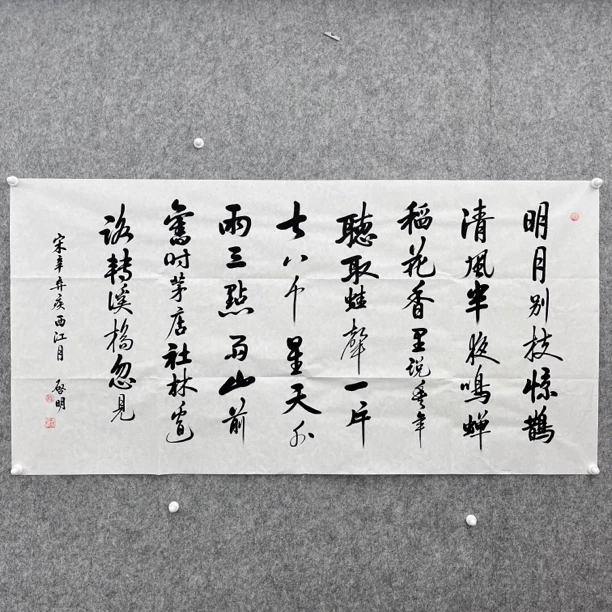 明月别枝惊鹊
清風半夜鳴蟬
稻花香里説豐年
聽取蛙聲一片
七八个星天外
兩三點雨山前
舊时茅店社林邊
路轉溪橋忽見
宋辛弃疾西江月 啟明